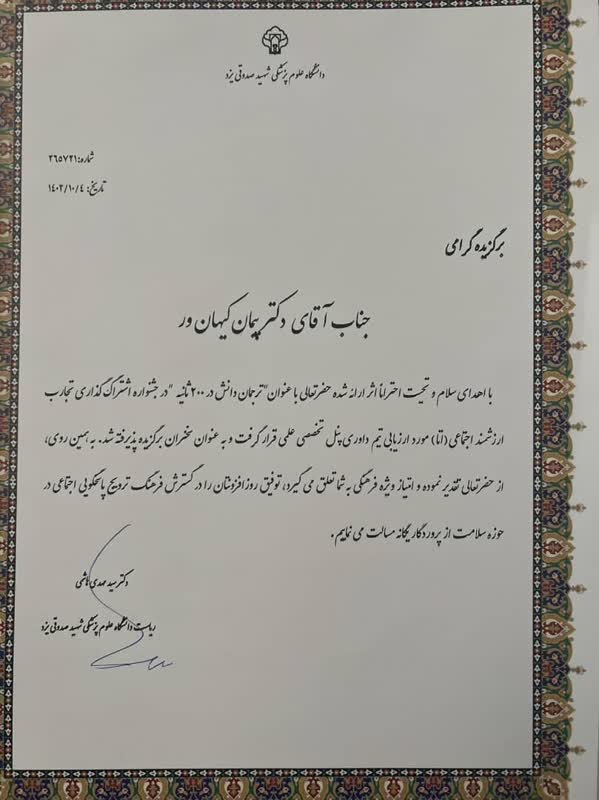 دانشگاه علوم پزشکی شهید صدوقی یزد
شماره: ۲۶۵۷۲۱
تاریخ: ۱۴۰۲/۱۰/۴
برگزیده گرامی
جناب آقای دکتر پیمان کیهان ور
با اهدای سلام و تحیت احتراماً اثر ارائه شده حضرتعالی با عنوان "ترجمان دانش در ۲۰۰ ثانیه "در جشنواره اشتراک گذاری تجارب
ارزشمند اجتماعی (اتا) مورد ارزیابی تیم داوری پنل تخصصی علمی قرار گرفت و به عنوان سخنران برگزیده پذیرفته شد. به همین روی،
از حضرتعالی تقدیر نموده و امتیاز ویژه فرهنگی به شما تعلق می گیرد، توفیق روزافزونتان را در گسترش فرهنگ ترویج پاسخگویی اجتماعی در
حوزه سلامت از پروردگار یگانه مسالت می نماییم.
دکتر سید مهدی هاشمی
ریاست دانشگاه علوم پزشکی شهید صدوقی یزد